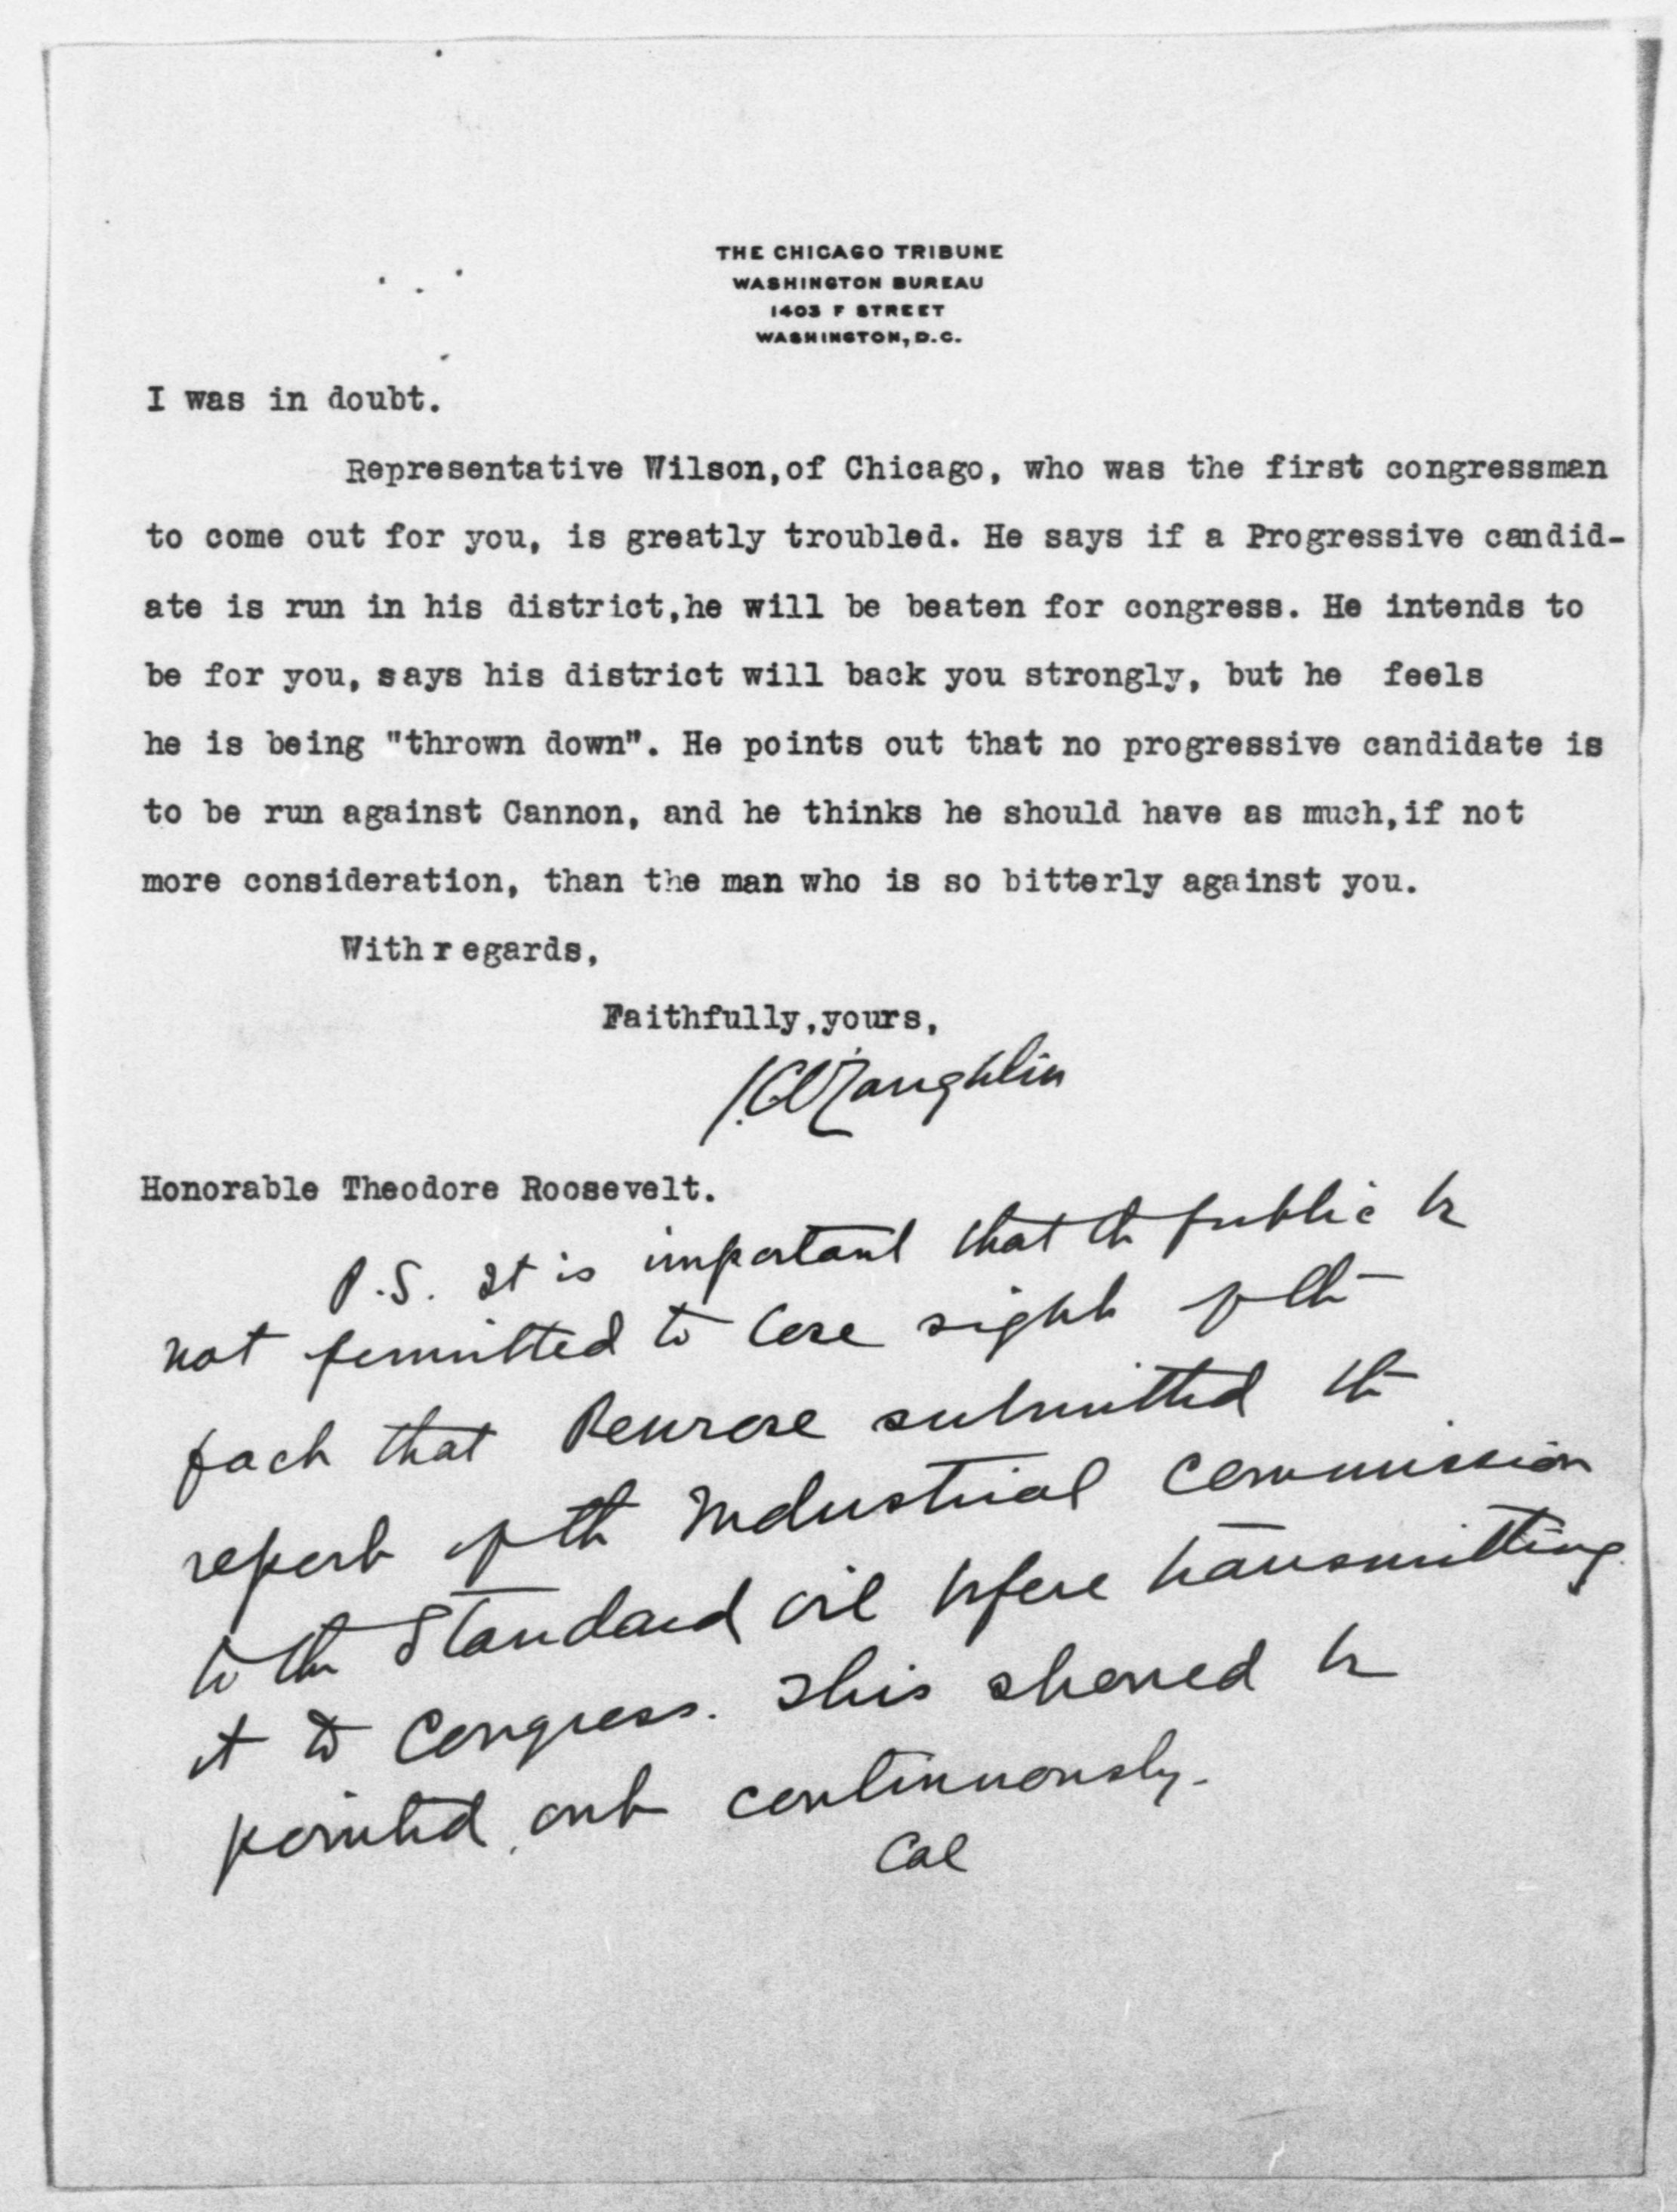 THE CHICAGO TRIBUNE
WASHINGTON BUREAU
1403 F STREET
WASHINGTON, D.C.
I was in doubt.
Representative Wilson,of Chicago, who was the first congressman
to come out for you, is greatly troubled. He says if a Progressive candid-
ate is run in his district,he will be beaten for congress. He intends to
be for you, says his district will back you strongly, but he feels
he is being "thrown down". He points out that no progressive candidate is
to be run against Cannon, and he thinks he should have as much,if not
more consideration, than the man who is so bitterly against you.
With regards,
Faithfully,yours,
J.C.O'Laughlin
Honorable Theodore Roosevelt.
P.S. It is important that the public be
not permitted to lose sight of the
fact that Penrose submitted the
report of the Industrial Commission
to the Standard Oil before transmitting
it to Congress. This should be
pointed out continuously.
Cal